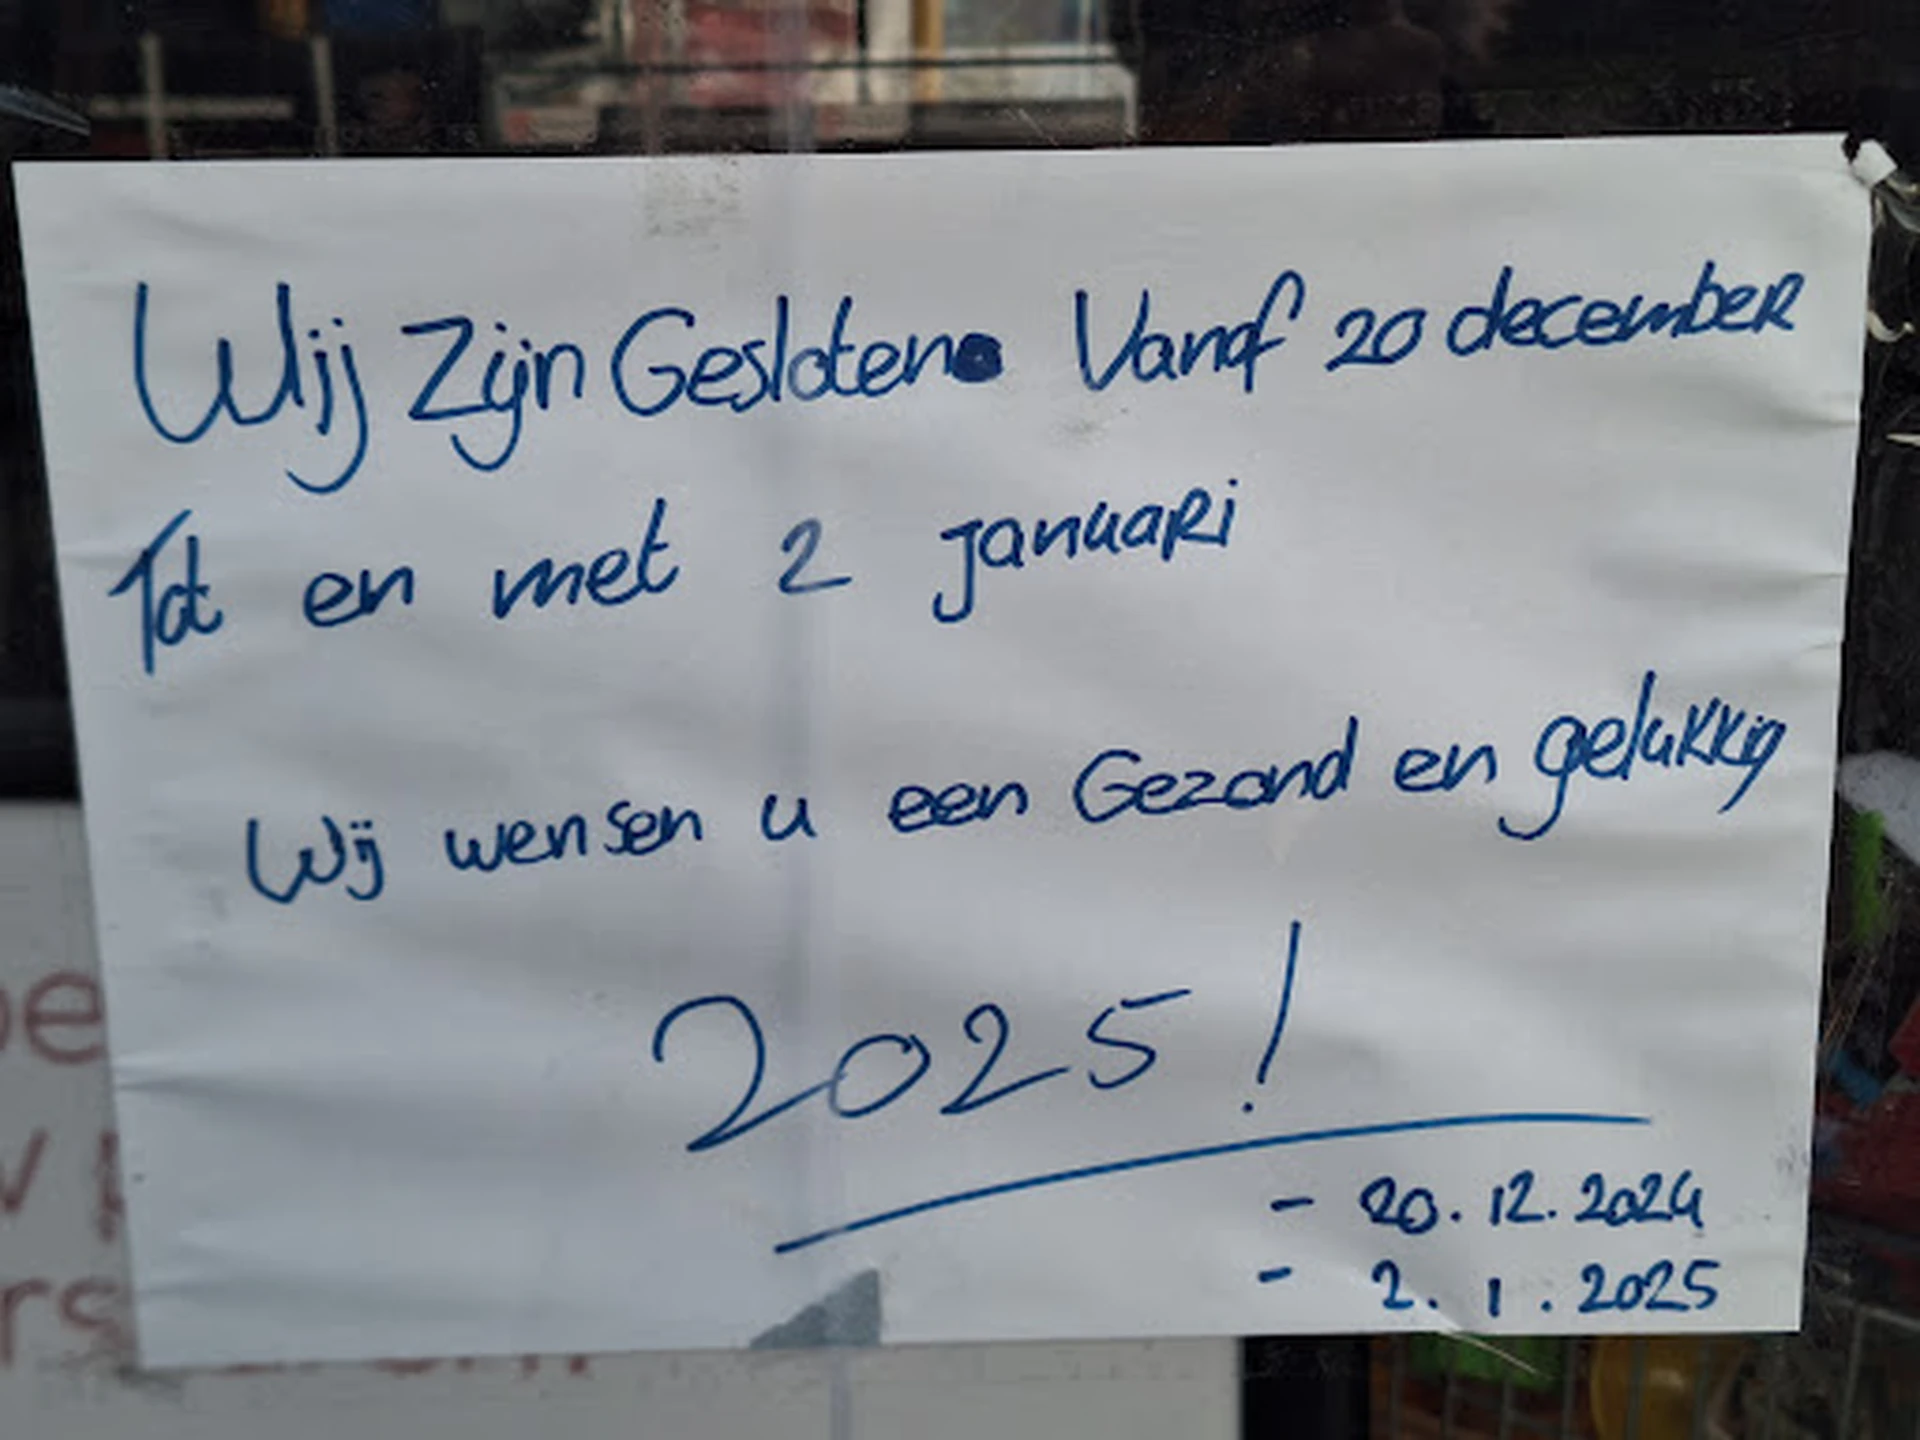 Wij Zijn Gesloten. Vanaf 20 december
Tot en met 2 januari
Wij wensen u een Gezond en gelukkig
2025!
- 20.12.2024
- 2.1.2025